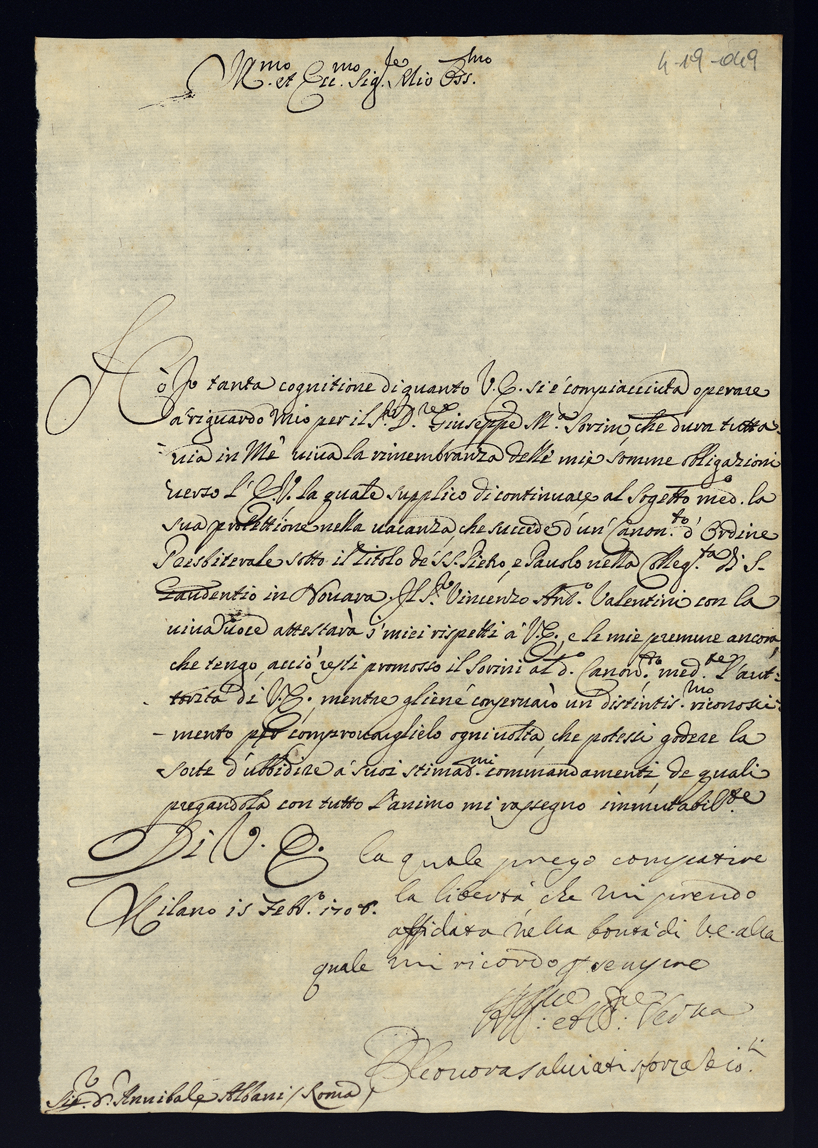 4-19-049
Ill.mo et Ecc.mo Sig.re Mio Oss.mo
Hò Io tanta cognitione di quanto V.E. si è compiacciuta operare
a' riguardo Mio per il S.r D.re Giuseppe M.a Sorini, che dura tutta-
uia in Mè uiua la rimembranza delle mie somme obligazioni
uerso l'E.V. la quale supplico di continuare al Sogetto med.o la
sua protettione nella uacanza, che succede d'un' Canon.to d'Ordine
Presbiterale sotto il titolo de' SS. Pietro, e Pauolo nella Colleg.ta di S.
Gaudentio in Nouara. Il S.r Vincenzo Ant.o Valentini con la
uiua uoce attestarà i' miei rispetti à V.E., e le mie premure ancora,
che tengo, acciò resti promosso il Sorini al d.o Canon.to med.te l'aut-
torità di V.E. mentre gliene conseruarò un distintis.mo riconosci-
mento per comprouarglielo ogni uolta, che potessi godere la
sorte d'ubbidire a' suoi stimad.mi commandamenti, de quali
pregandola con tutto l'animo mi rassegno immutabil.te
Di V. E. la quale prego compatire
la libertà che mi prendo
Milano 15 Febb.o 1708.
affidata nella bontà di V.E. alla
quale mi ricordo p sempre
et Serua
Eleonora Saluiati Sforza
Sig.r D. Annibale Albani / Roma